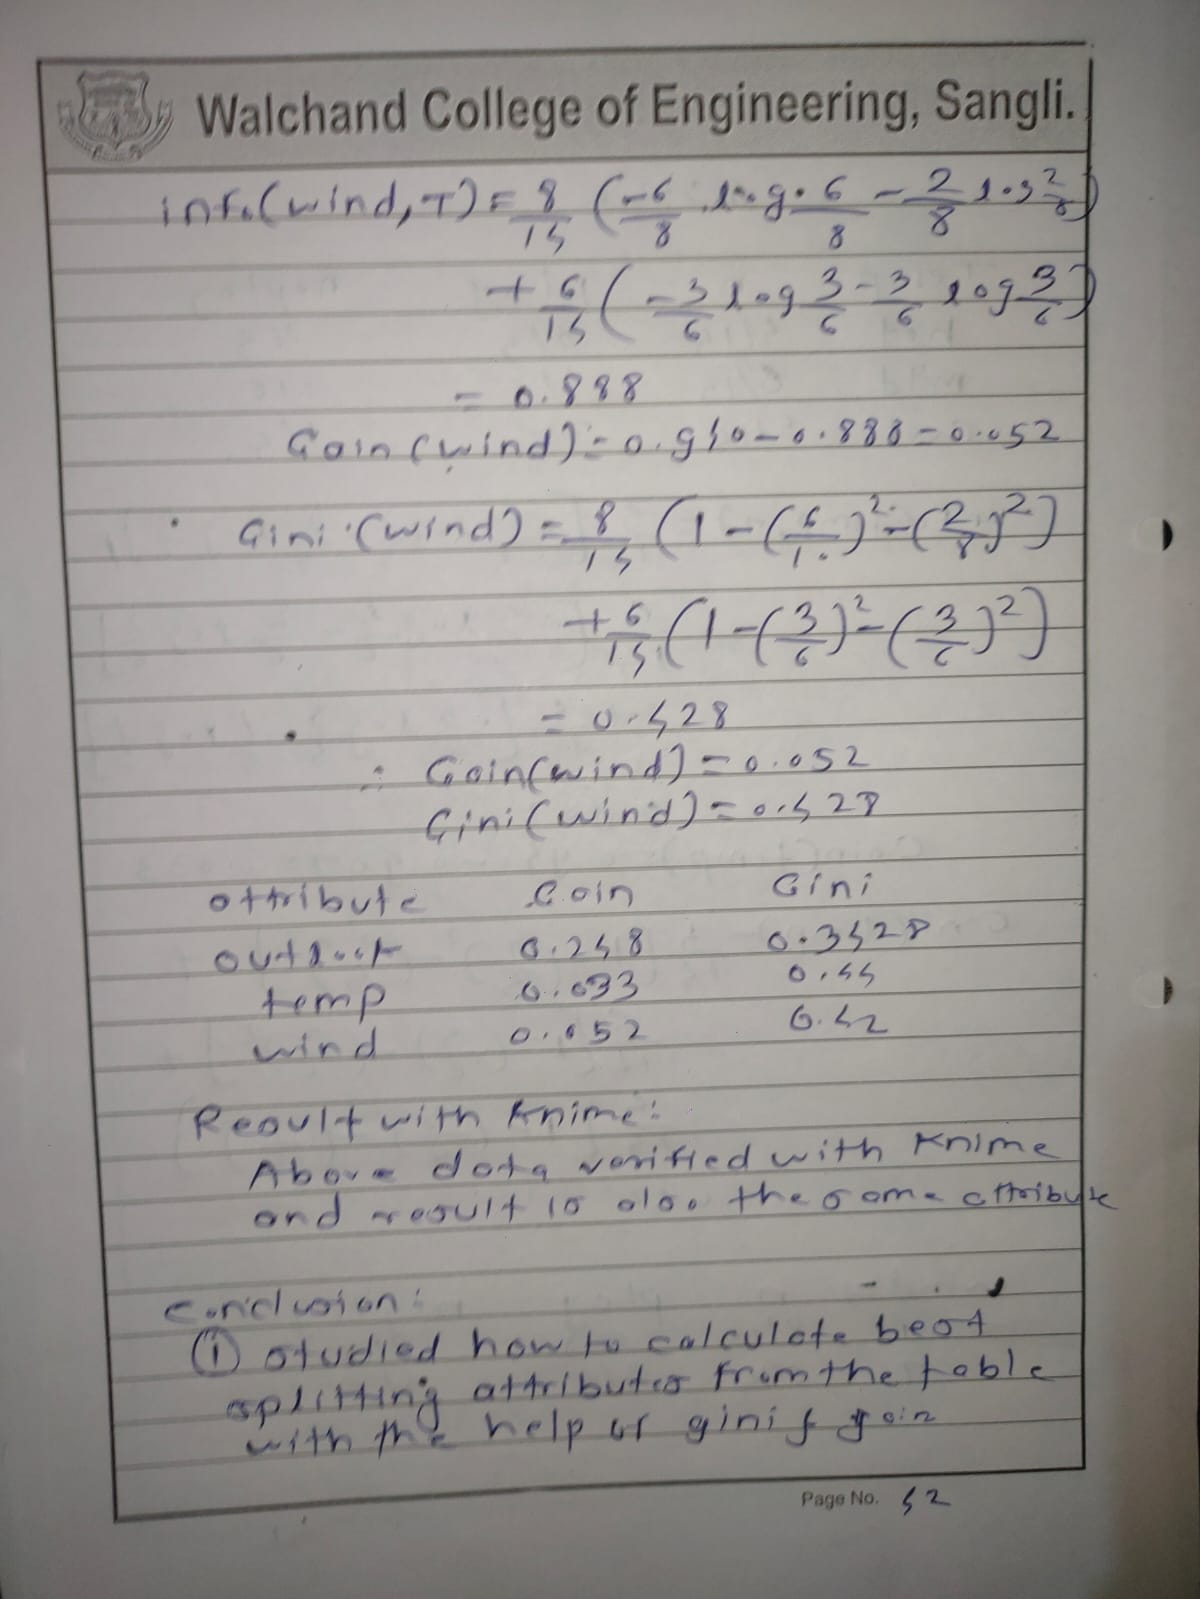 Walchand College of Engineering, Sangli.
info(wind,T) = 8/14 (-6/8 log 6/8 - 2/8 log 2/8)
+ 6/14 (-3/6 log 3/6 - 3/6 log 3/6)
= 0.888
Gain (wind) = 0.940 - 0.888 = 0.052
Gini (wind) = 8/14 (1 - (6/10)² - (2/8)²)
+ 6/14 (1 - (3/6)² - (3/6)²)
= 0.428
∴ Gain(wind) = 0.052
Gini (wind) = 0.428
attribute Gain Gini
outlook 0.248 0.3428
temp 0.033 0.44
wind 0.052 0.42
Result with Knime:
Above data verified with Knime
and result is also the same attribute
Conclusion:
① studied how to calculate best
splitting attributes from the table
with the help of gini & gain
Page No. 42